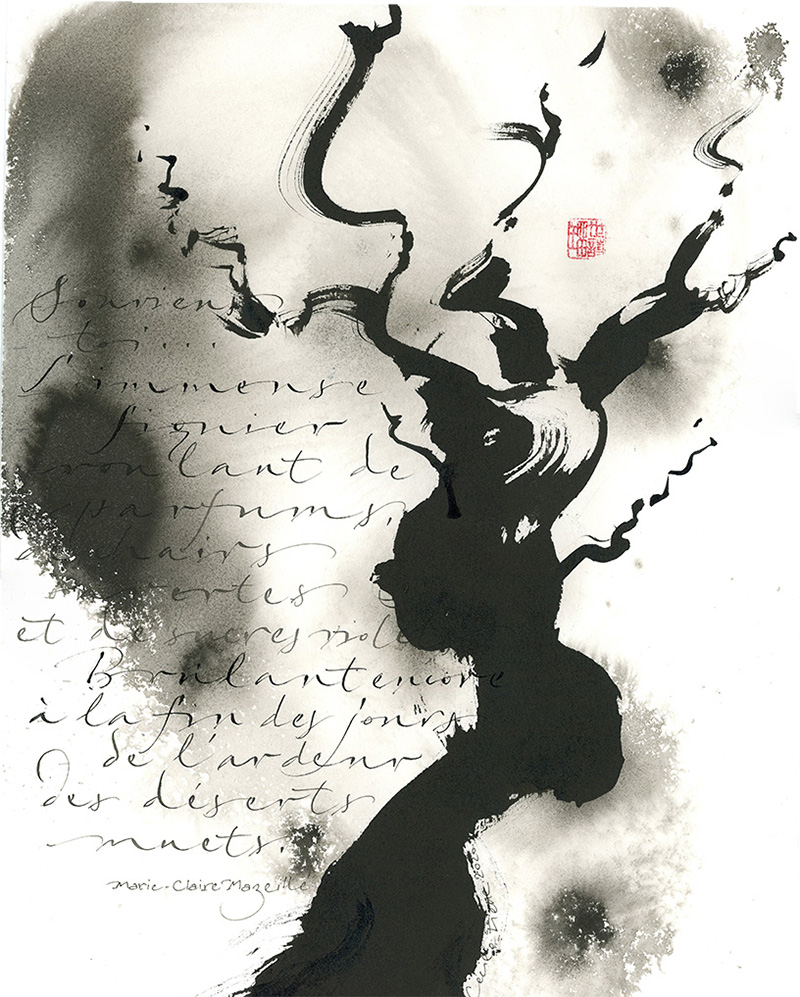 Souviens
toi...
L'immense
figuier
croulant de
parfums,
de chairs
ouvertes
et de sucres violets
Brûlant encore
à la fin des jours
de l'ardeur
des déserts
muets.
Marie-Claire Mazeille